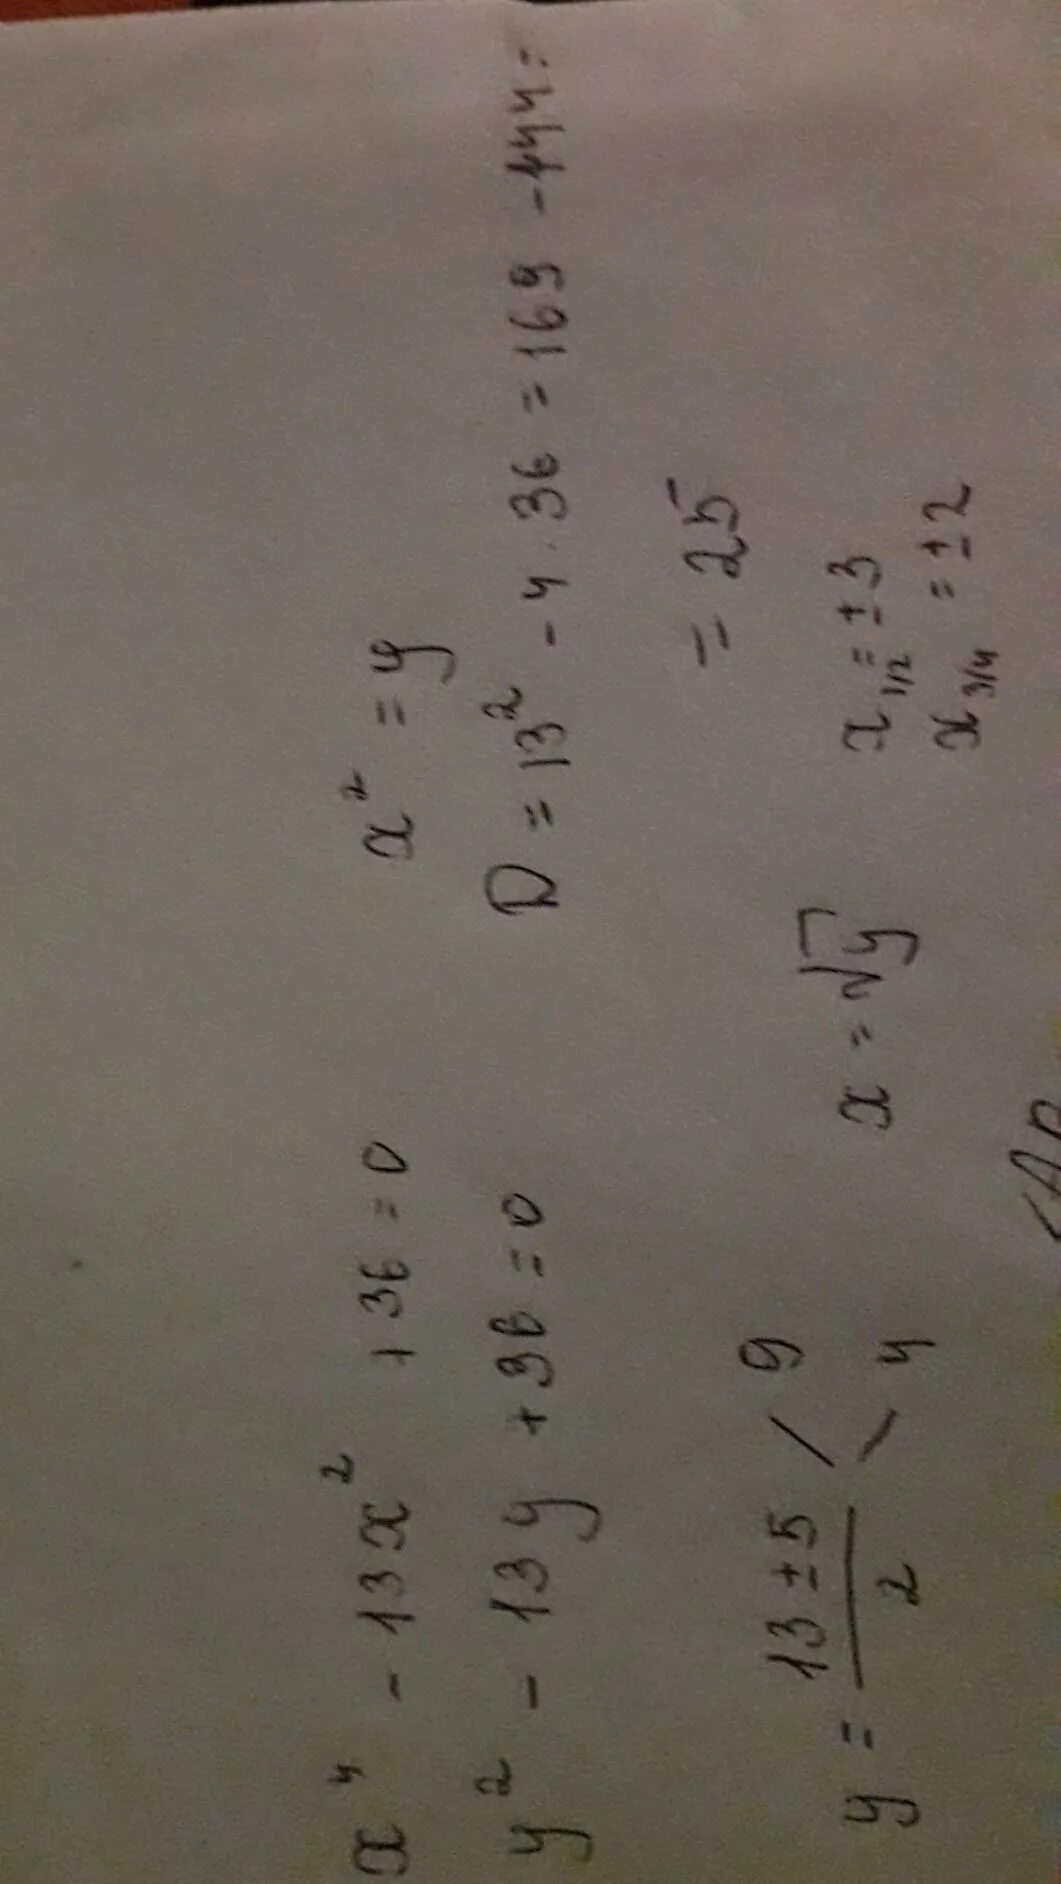 x⁴ - 13x² + 36 = 0    x² = y
y² - 13y + 36 = 0    D = 13² - 4 · 36 = 169 - 144 =
= 25
y = (13 ± 5)/2 / 9 \ 4    x = √y    x₁/₂ = ± 3
x₃/₄ = ± 2